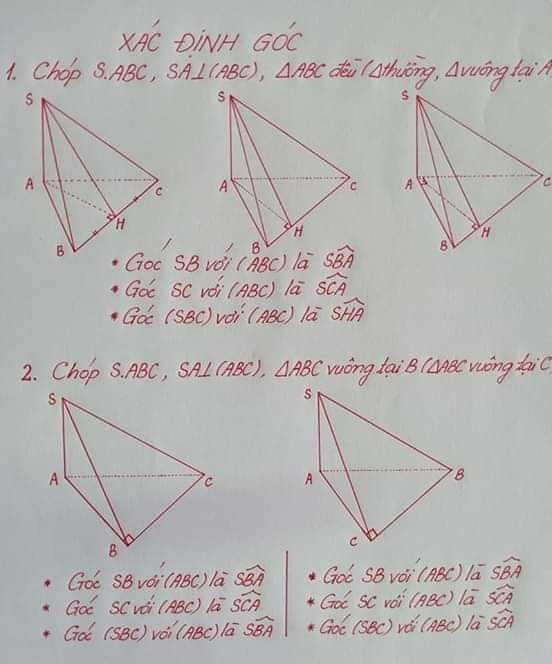 XÁC ĐỊNH GÓC
1. Chóp S.ABC, SA⊥(ABC), ΔABC đều (Δthường, Δvuông tại A
S S S
A C A C A C
B H B H B H
* Góc SB với (ABC) là SBA
* Góc SC với (ABC) là SCA
* Góc (SBC) với (ABC) là SHA
2. Chóp S.ABC, SA⊥(ABC), ΔABC vuông tại B (ΔABC vuông tại C
S S
A C A B
B C
* Góc SB với (ABC) là SBA
* Góc SC với (ABC) là SCA
* Góc (SBC) với (ABC) là SBA
* Góc SB với (ABC) là SBA
* Góc SC với (ABC) là SCA
* Góc (SBC) với (ABC) là SCA